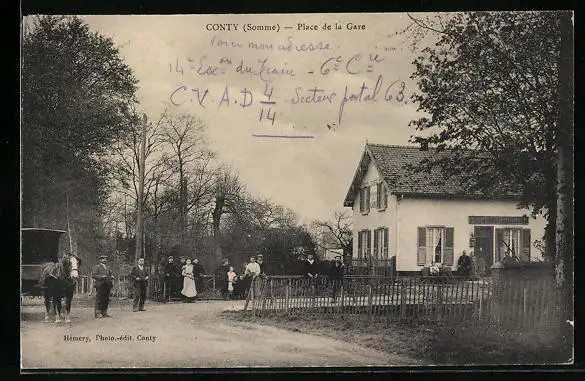 CONTY (Somme) — Place de la Gare
Voici mon adresse
14e Escon du Train - 6e Cie
C.V.A.D 4/14 Secteur postal 63.
Hémery, Photo.-édit Conty